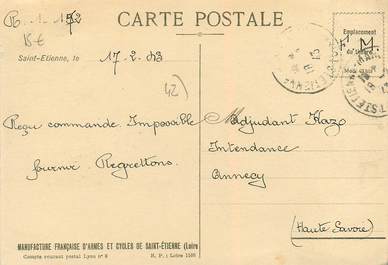 R. 1. 152
15€
CARTE POSTALE
Emplacement
du Timbre
F. M.
Saint-Etienne, le 17-2-43
42)
Reçu commande. Impossible
fournir. Regrettons.
Adjudant Kazo
Intendance
Annecy
(Haute Savoie)
MANUFACTURE FRANÇAISE D'ARMES ET CYCLES DE SAINT-ÉTIENNE (Loire
Compte courant postal Lyon n° 8 R. P. : Loire 1598